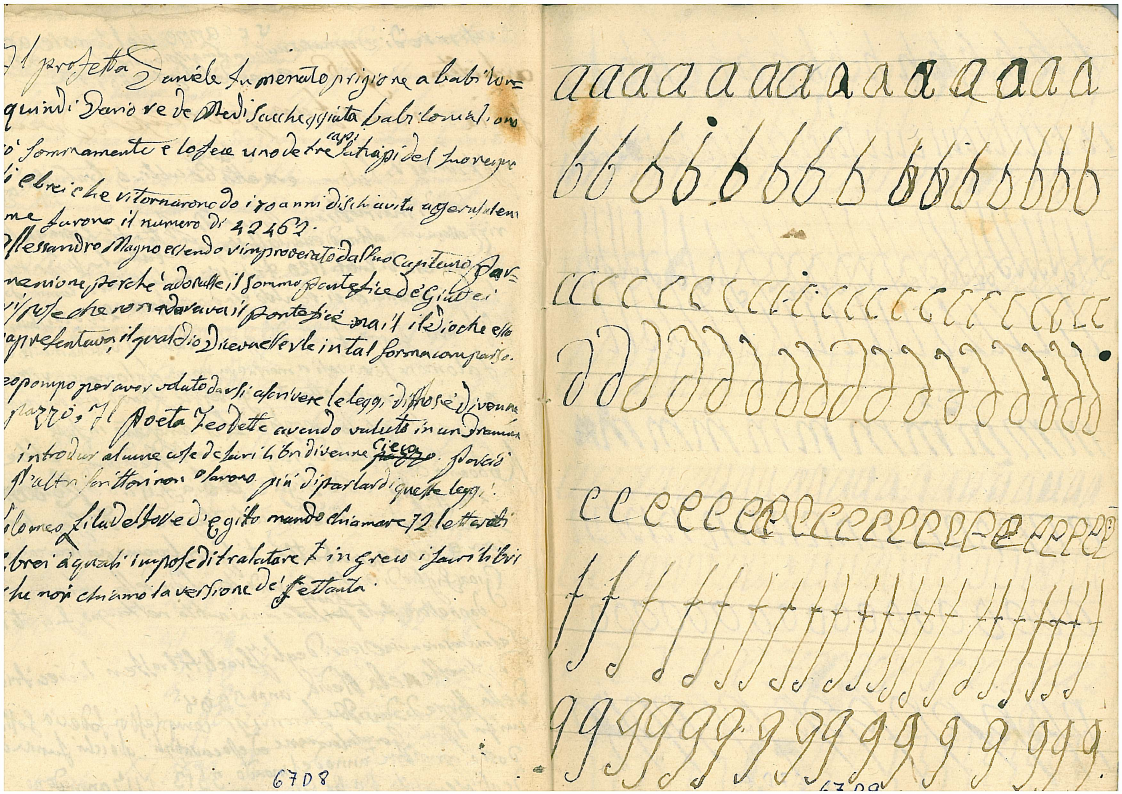 Il profetta Daniele fu menato prigione a babilon=
quindi Dario re de Medi saccheggiata babilonia
ò sommamente e lo fece uno de tre capi Satrapi del suo regno
ebrei che ritornarono do i 70 anni di schiavitu a gerusalem
me furono il numero di 42462.
Alessandro Magno essendo rimproverato dal suo Capitano Par=
menione, perche adorasse il sommo pontefice de Giudei
rispose che non adorava il pontefice ma il Dio che esso
rapresentava, il qual dio, in tal forma comparso.
eopompo per aver voluto scrivere le leggi, divenne
pazzo, Il poeta Teodette avendo voluto in un Drama
introdur alcune cose de sacri libri divenne cieco pazzo. percio
altri scrittori non osarono più di parlar di queste leggi.
tolomeo filadelfo re d'egitto mando chiamare 72 letterati
ebrei a quali impose di tralatare in greco i sacri libri
che noi chiamo la versione de settanta.
6708
a a a a a a a a a a a a a a a a
b b b b b b b b b b b b b b b b
c c c c c c c c c c c c c c c c c c c c
d d d d d d d d d d d d d d d d d d
e e e e e e e e e e e e e e e e e e e e
f f f f f f f f f f f f f f f f f f
g g g g g g g g g g g g g g g g
6709